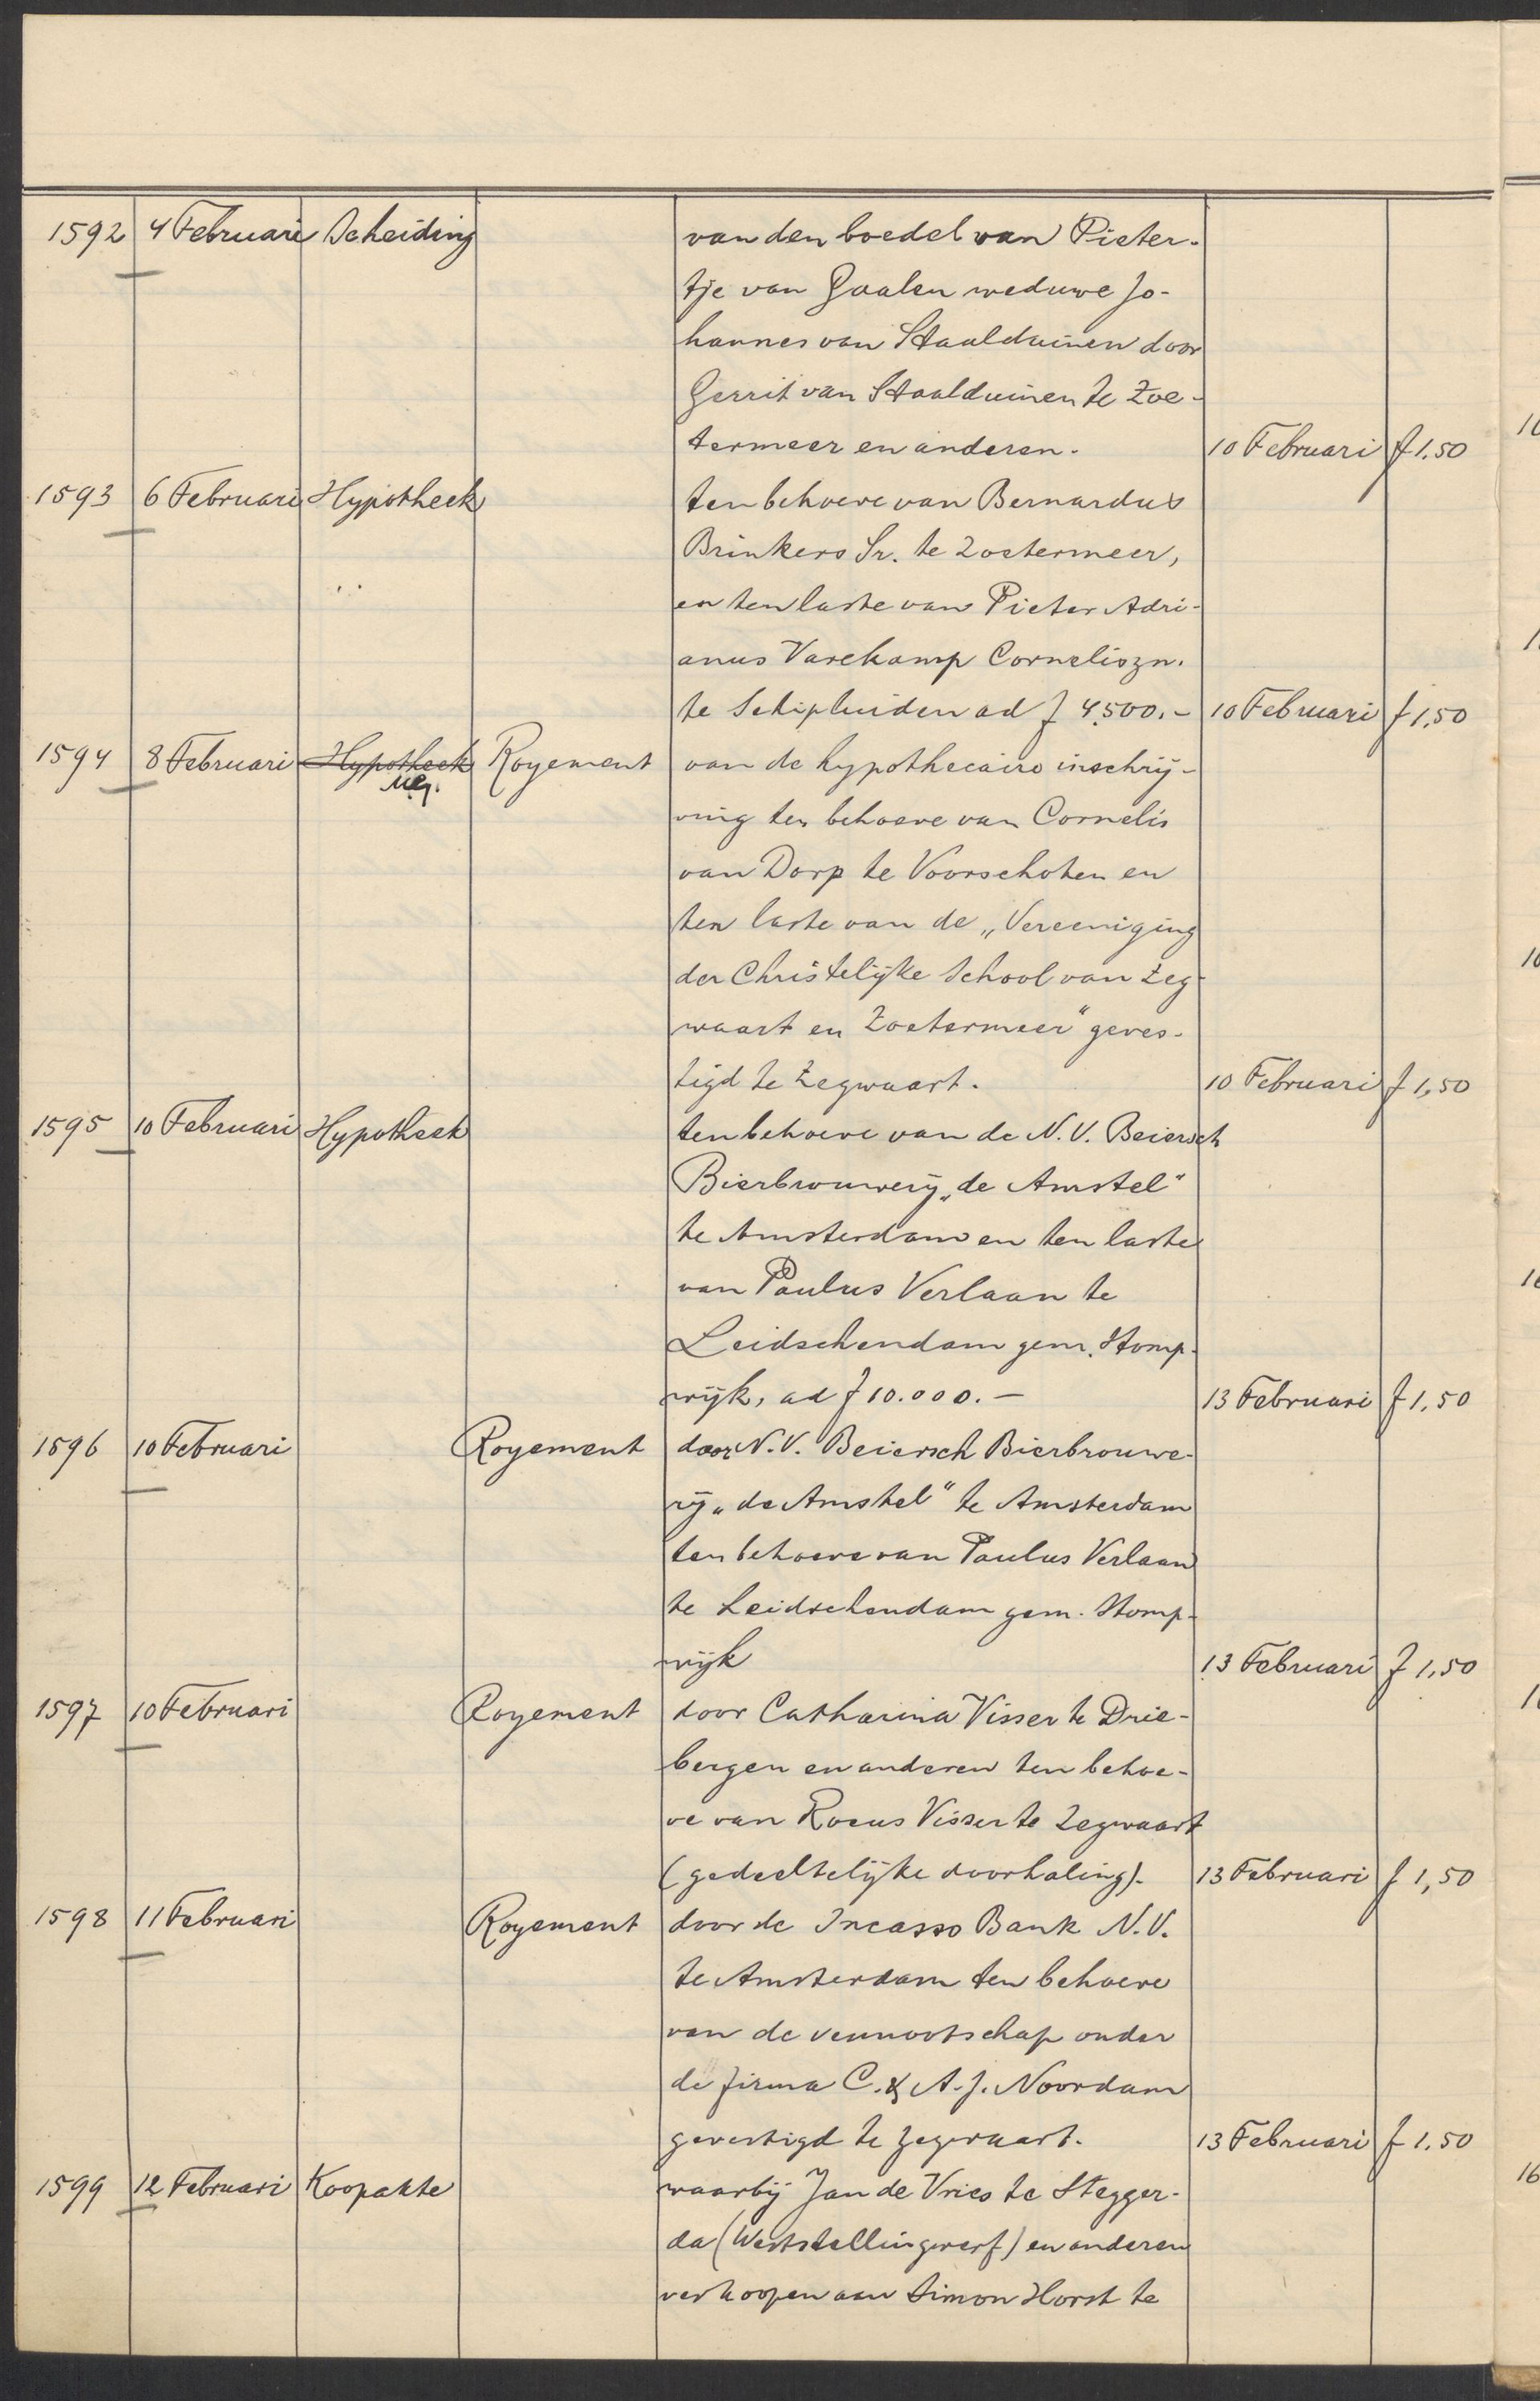 1592 4 Februari Scheiding van den boedel van Pieter-
tje van Gaalen weduwe Jo-
hannes van Staalduinen door
Gerrit van Staalduinen te Zoe-
termeer en anderen. 10 Februari f 1.50
1593 6 Februari Hypotheek ten behoeve van Bernardus
Brinkers Sr. te Zoetermeer,
en ten laste van Pieter Adri-
anus Varekamp Corneliszn.
te Schipluiden ad f 4.500.- 10 Februari f 1.50
1594 8 Februari Hypotheek Royement van de hypothecaire inschrij-
ving ten behoeve van Cornelis
van Dorp te Voorschoten en
ten laste van de „Vereeniging
der Christelijke School van Zeg-
waart en Zoetermeer" geves-
tigd te Zegwaart. 10 Februari f 1,50
1595 10 Februari Hypotheek ten behoeve van de N.V. Beiersch
Bierbrouwerij „de Amstel"
te Amsterdam en ten laste
van Paulus Verlaan te
Leidschendam gem. Stomp-
wijk, ad f 10.000.- 13 Februari f 1,50
1596 10 Februari Royement door N.V. Beiersch Bierbrouwe-
rij „de Amstel" te Amsterdam
ten behoeve van Paulus Verlaan
te Leidschendam gem. Stomp-
wijk 13 Februari f 1,50
1597 10 Februari Royement door Catharina Visser te Drie-
bergen en anderen ten behoe-
ve van Rocus Visser te Zegwaart
(gedeeltelijke doorhaling). 13 Februari f 1,50
1598 11 Februari Royement door de Incasso Bank N.V.
te Amsterdam ten behoeve
van de vennootschap onder
de firma C. & A.J. Noordam
gevestigd te Zegwaart. 13 Februari f 1.50
1599 12 Februari Koopakte waarbij Jan de Vries te Stegger-
da (Weststellingwerf) en anderen
verkoopen aan Simon Horst te